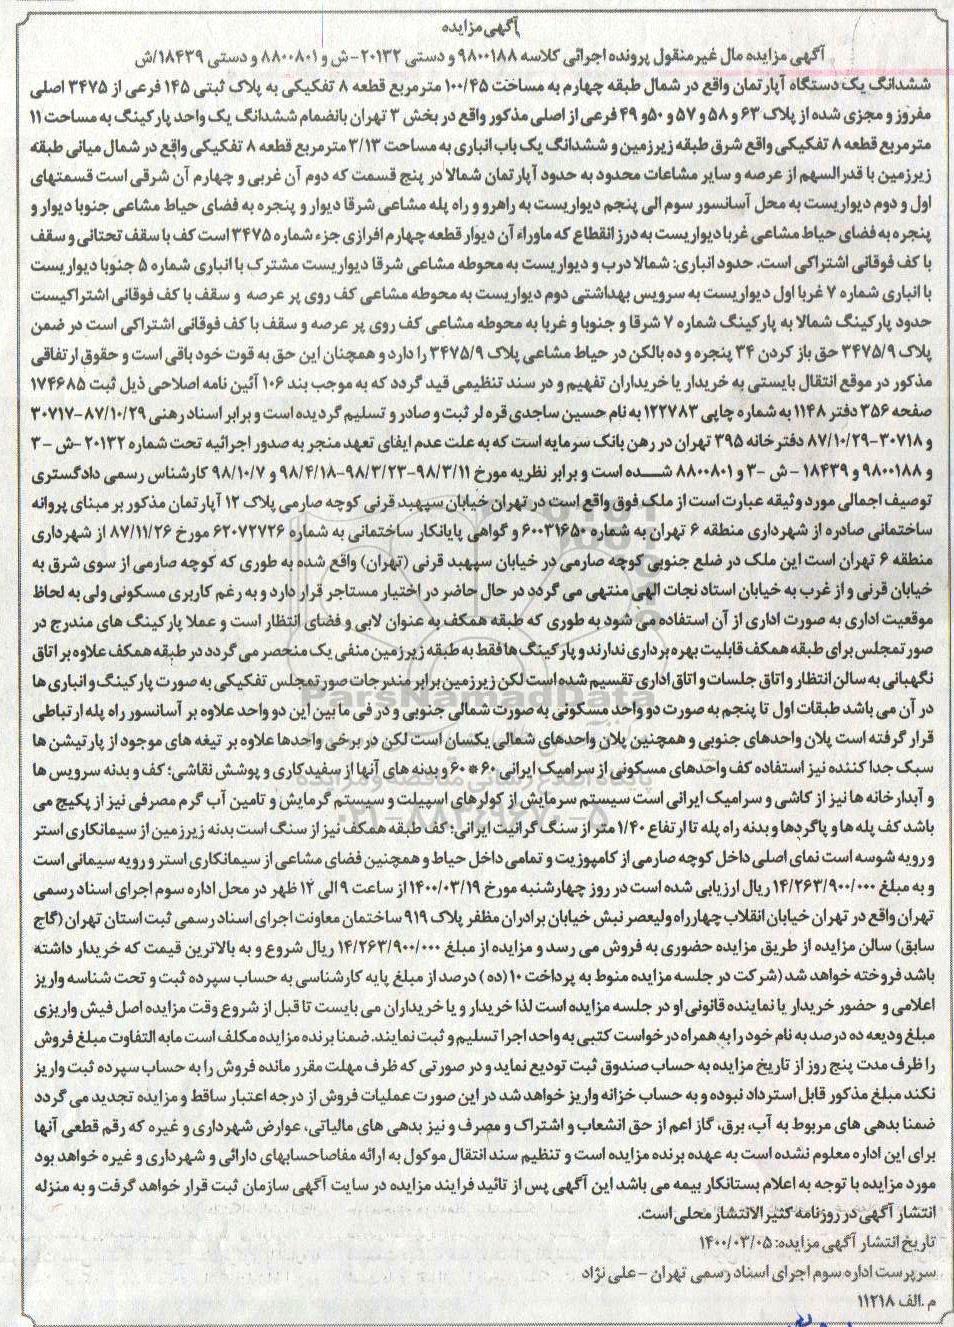 آگهی مزایده
آگهی مزایده مال غیر منقول پرونده اجرائی کلاسه ۹۸۰۰۱۸۸ و دستی ۲۰۱۳۲-ش و ۸۸۰۰۸۰۱ و دستی ۱۸۴۳۹/ش
ششدانگ یک دستگاه آپارتمان واقع در شمال طبقه چهارم به مساحت ۱۰۰/۴۵ مترمربع قطعه ۸ تفکیکی به پلاک ثبتی ۱۴۵ فرعی از ۳۴۷۵ اصلی
مفروز و مجزی شده از پلاک ۶۳ و ۵۸ و ۵۷ و ۵۰ و ۴۹ فرعی از اصلی مذکور واقع در بخش ۳ تهران بانضمام ششدانگ یک واحد پارکینگ به مساحت ۱۱
مترمربع قطعه ۸ تفکیکی واقع شرق طبقه زیرزمین و ششدانگ یک باب انباری به مساحت ۳/۱۳ مترمربع قطعه ۸ تفکیکی واقع در شمال میانی طبقه
زیرزمین با قدرالسهم از عرصه و سایر مشاعات محدود به حدود آپارتمان شمالا در پنج قسمت که دوم آن غربی و چهارم آن شرقی است قسمتهای
اول و دوم دیواریست به محل آسانسور سوم الی پنجم دیواریست به راهرو و راه پله مشاعی شرقا دیوار و پنجره به فضای حیاط مشاعی جنوبا دیوار و
پنجره به فضای حیاط مشاعی غربا دیواریست به درز انقطاع که ماوراء آن دیوار قطعه چهارم افرازی جزء شماره ۳۴۷۵ است کف با سقف تحتانی و سقف
با کف فوقانی اشتراکی است. حدود انباری: شمالا درب و دیواریست به محوطه مشاعی شرقا دیواریست مشترک با انباری شماره ۵ جنوبا دیواریست
با انباری شماره ۷ غربا اول دیواریست به سرویس بهداشتی دوم دیواریست به محوطه مشاعی کف روی پر عرصه و سقف با کف فوقانی اشتراکیست
حدود پارکینگ شمالا به پارکینگ شماره ۷ شرقا و جنوبا و غربا به محوطه مشاعی کف روی پر عرصه و سقف با کف فوقانی اشتراکی است در ضمن
پلاک ۳۴۷۵/۹ حق باز کردن ۳۴ پنجره و ده بالکن در حیاط مشاعی پلاک ۳۴۷۵/۹ را دارد و همچنان این حق به قوت خود باقی است و حقوق ارتفاقی
مذکور در موقع انتقال بایستی به خریدار یا خریداران تفهیم و در سند تنظیمی قید گردد که به موجب بند ۱۰۶ آئین نامه اصلاحی ذیل ثبت ۱۷۴۶۸۵
صفحه ۳۵۶ دفتر ۱۱۴۸ به شماره چاپی ۱۲۲۷۸۳ به نام حسین ساجدی قره لر ثبت و صادر و تسلیم گردیده است و برابر اسناد رهنی ۸۷/۱۰/۲۹-۳۰۷۱۷
و ۳۰۷۱۸-۸۷/۱۰/۲۹ دفترخانه ۳۹۵ تهران در رهن بانک سرمایه است که به علت عدم ایفای تعهد منجر به صدور اجرائیه تحت شماره ۲۰۱۳۲ -ش - ۳
و ۹۸۰۰۱۸۸ و ۱۸۴۳۹ - ش -۳ و ۸۸۰۰۸۰۱ شده است و برابر نظریه مورخ ۹۸/۳/۱۱-۹۸/۳/۲۳-۹۸/۴/۱۸ و ۹۸/۱۰/۷ کارشناس رسمی دادگستری
توصیف اجمالی مورد وثیقه عبارت است از ملک فوق واقع است در تهران خیابان سپهبد قرنی کوچه صارمی پلاک ۱۲ آپارتمان مذکور بر مبنای پروانه
ساختمانی صادره از شهرداری منطقه ۶ تهران به شماره ۶۰۰۳۱۶۵۰ و گواهی پایانکار ساختمانی به شماره ۶۲۰۷۲۷۲۶ مورخ ۸۷/۱۱/۲۶ از شهرداری
منطقه ۶ تهران است این ملک در ضلع جنوبی کوچه صارمی در خیابان سپهبد قرنی (تهران) واقع شده به طوری که کوچه صارمی از سوی شرق به
خیابان قرنی و از غرب به خیابان استاد نجات الهی منتهی می گردد در حال حاضر در اختیار مستاجر قرار دارد و به رغم کاربری مسکونی ولی به لحاظ
موقعیت اداری به صورت اداری از آن استفاده می شود به طوری که طبقه همکف به عنوان لابی و فضای انتظار است و عملا پارکینگ های مندرج در
صورتمجلس برای طبقه همکف قابلیت بهره برداری ندارند و پارکینگ ها فقط به طبقه زیرزمین منفی یک منحصر می گردد در طبقه همکف علاوه بر اتاق
نگهبانی به سالن انتظار و اتاق جلسات و اتاق اداری تقسیم شده است لکن زیرزمین برابر مندرجات صورتمجلس تفکیکی به صورت پارکینگ و انباری ها
در آن می باشد طبقات اول تا پنجم به صورت دو واحد مسکونی به صورت شمالی جنوبی و در فی ما بین این دو واحد علاوه بر آسانسور راه پله ارتباطی
قرار گرفته است پلان واحدهای جنوبی و همچنین پلان واحدهای شمالی یکسان است لکن در برخی واحدها علاوه بر تیغه های موجود از پارتیشن ها
سبک جدا کننده نیز استفاده کف واحدهای مسکونی از سرامیک ایرانی ۶۰*۶۰ و بدنه های آنها از سفیدکاری و پوشش نقاشی؛ کف و بدنه سرویس ها
و آبدارخانه ها نیز از کاشی و سرامیک ایرانی است سیستم سرمایش از کولرهای اسپیلت و سیستم گرمایش و تامین آب گرم مصرفی نیز از پکیج می
باشد کف پله ها و پاگردها و بدنه راه پله تا ارتفاع ۱/۴۰ متر از سنگ گرانیت ایرانی؛ کف طبقه همکف نیز از سنگ است بدنه زیرزمین از سیمانکاری استر
و رویه شوسه است نمای اصلی داخل کوچه صارمی از کامپوزیت و تمامی داخل حیاط و همچنین فضای مشاعی از سیمانکاری استر و رویه سیمانی است
و به مبلغ ۱۴/۲۶۳/۹۰۰/۰۰۰ ریال ارزیابی شده است در روز چهارشنبه مورخ ۱۴۰۰/۰۳/۱۹ از ساعت ۹ الی ۱۲ ظهر در محل اداره سوم اجرای اسناد رسمی
تهران واقع در تهران خیابان انقلاب چهارراه ولیعصر نبش خیابان برادران مظفر پلاک ۹۱۹ ساختمان معاونت اجرای اسناد رسمی ثبت استان تهران (گاج
سابق) سالن مزایده از طریق مزایده حضوری به فروش می رسد و مزایده از مبلغ ۱۴/۲۶۳/۹۰۰/۰۰۰ ریال شروع و به بالاترین قیمت که خریدار داشته
باشد فروخته خواهد شد (شرکت در جلسه مزایده منوط به پرداخت ۱۰ (ده) درصد از مبلغ پایه کارشناسی به حساب سپرده ثبت و تحت شناسه واریز
اعلامی و حضور خریدار یا نماینده قانونی او در جلسه مزایده است لذا خریدار و یا خریداران می بایست تا قبل از شروع وقت مزایده اصل فیش واریزی
مبلغ ودیعه ده درصد به نام خود را به همراه درخواست کتبی به واحد اجرا تسلیم و ثبت نمایند. ضمنا برنده مزایده مکلف است مابه التفاوت مبلغ فروش
را ظرف مدت پنج روز از تاریخ مزایده به حساب صندوق ثبت تودیع نماید و در صورتی که ظرف مهلت مقرر مانده فروش را به حساب سپرده ثبت واریز
نکند مبلغ مذکور قابل استرداد نبوده و به حساب خزانه واریز خواهد شد در این صورت عملیات فروش از درجه اعتبار ساقط و مزایده تجدید می گردد
ضمنا بدهی های مربوط به آب، برق، گاز اعم از حق انشعاب و اشتراک و مصرف و نیز بدهی های مالیاتی، عوارض شهرداری و غیره که رقم قطعی آنها
برای این اداره معلوم نشده است به عهده برنده مزایده است و تنظیم سند انتقال موکول به ارائه مفاصاحسابهای دارائی و شهرداری و غیره خواهد بود
مورد مزایده با توجه به اعلام بستانکار بیمه می باشد این آگهی پس از تائید فرایند مزایده در سایت آگهی سازمان ثبت قرار خواهد گرفت و به منزله
انتشار آگهی در روزنامه کثیرالانتشار محلی است.
تاریخ انتشار آگهی مزایده: ۱۴۰۰/۰۳/۰۵
سرپرست اداره سوم اجرای اسناد رسمی تهران - علی نژاد
م.الف ۱۱۲۱۸
ParsNamadData
پایگاه اطلاع رسانی مناقصه و مزایده
۰۲۱-۸۸۳۴۹۶۷۰-۵